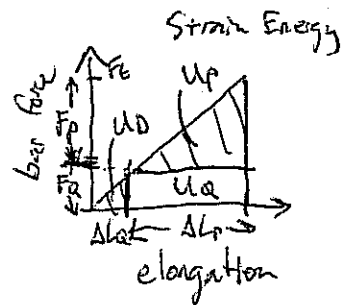 Strain Energy
Ft
bar force
Fp
FQ
UD
UP
UQ
ΔLQ
ΔLp
elongation